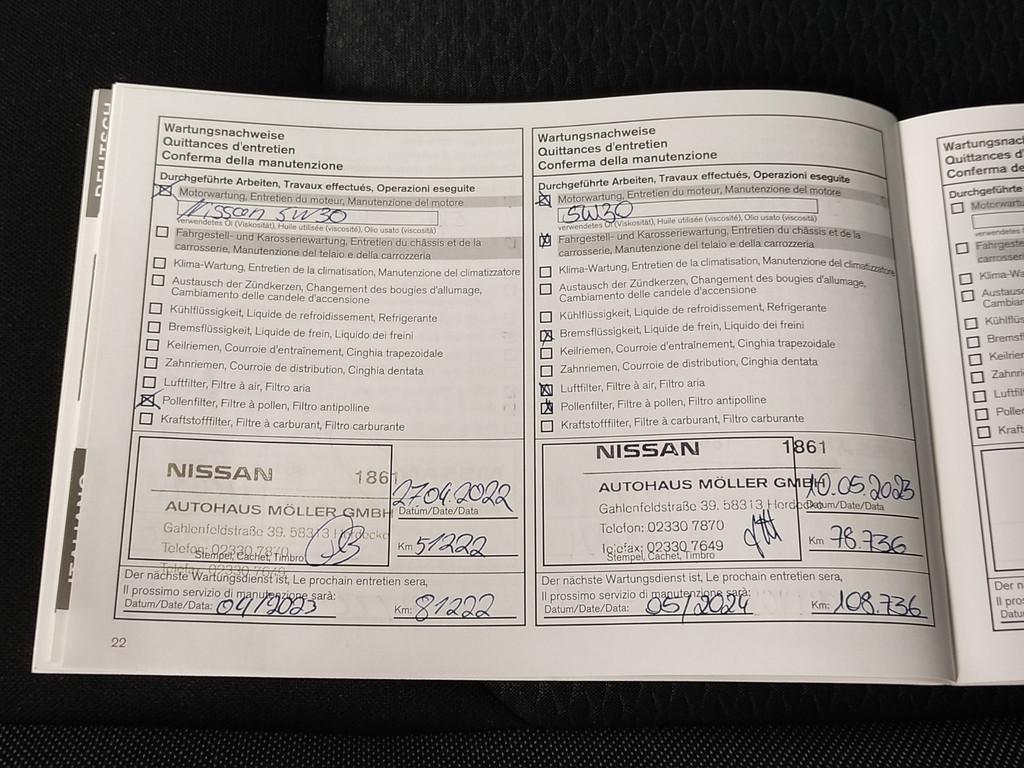 DEUTSCH
Wartungsnachweise
Quittances d'entretien
Conferma della manutenzione
Durchgeführte Arbeiten, Travaux effectués, Operazioni eseguite
Motorwartung, Entretien du moteur, Manutenzione del motore
Nissan 5W30
verwendetes Öl (Viskosität), Huile utilisée (viscosité), Olio usato (viscosità)
Fahrgestell- und Karosseriewartung, Entretien du châssis et de la
carrosserie, Manutenzione del telaio e della carrozzeria
Klima-Wartung, Entretien de la climatisation, Manutenzione del climatizzatore
Austausch der Zündkerzen, Changement des bougies d'allumage,
Cambiamento delle candele d'accensione
Kühlflüssigkeit, Liquide de refroidissement, Refrigerante
Bremsflüssigkeit, Liquide de frein, Liquido dei freini
Keilriemen, Courroie d'entraînement, Cinghia trapezoidale
Zahnriemen, Courroie de distribution, Cinghia dentata
Luftfilter, Filtre à air, Filtro aria
Pollenfilter, Filtre à pollen, Filtro antipolline
Kraftstofffilter, Filtre à carburant, Filtro carburante
NISSAN 1861
AUTOHAUS MÖLLER GMBH
Gahlenfeldstraße 39. 58313 Herdecke
Telefon: 02330 7870
Telefax: 02330 7649
Stempel, Cachet, Timbro
27.04.2022
Datum/Date/Data
Km 51222
Der nächste Wartungsdienst ist, Le prochain entretien sera,
Il prossimo servizio di manutenzione sarà:
Datum/Date/Data: 04/2023 Km: 81222
22
ITALIANO
Wartungsnachweise
Quittances d'entretien
Conferma della manutenzione
Durchgeführte Arbeiten, Travaux effectués, Operazioni eseguite
Motorwartung, Entretien du moteur, Manutenzione del motore
5W30
verwendetes Öl (Viskosität), Huile utilisée (viscosité), Olio usato (viscosità)
Fahrgestell- und Karosseriewartung, Entretien du châssis et de la
carrosserie, Manutenzione del telaio e della carrozzeria
Klima-Wartung, Entretien de la climatisation, Manutenzione del climatizzatore
Austausch der Zündkerzen, Changement des bougies d'allumage,
Cambiamento delle candele d'accensione
Kühlflüssigkeit, Liquide de refroidissement, Refrigerante
Bremsflüssigkeit, Liquide de frein, Liquido dei freini
Keilriemen, Courroie d'entraînement, Cinghia trapezoidale
Zahnriemen, Courroie de distribution, Cinghia dentata
Luftfilter, Filtre à air, Filtro aria
Pollenfilter, Filtre à pollen, Filtro antipolline
Kraftstofffilter, Filtre à carburant, Filtro carburante
NISSAN 1861
AUTOHAUS MÖLLER GMBH
Gahlenfeldstraße 39. 58313 Herdecke
Telefon: 02330 7870
Telefax: 02330 7649
Stempel, Cachet, Timbro
10.05.2023
Datum/Date/Data
Km 78.736
Der nächste Wartungsdienst ist, Le prochain entretien sera,
Il prossimo servizio di manutenzione sarà:
Datum/Date/Data: 05/2024 Km: 108.736
Wartungsnach
Quittances d
Conferma de
Durchgeführte
Motorwartu
verwendetes
Fahrgeste
carrosse
Klima-Wa
Austausc
Cambiar
Kühlflüs
Bremsf
Keilrie
Zahnri
Luftfil
Polle
Kraft
Der n
Il pro
Datu